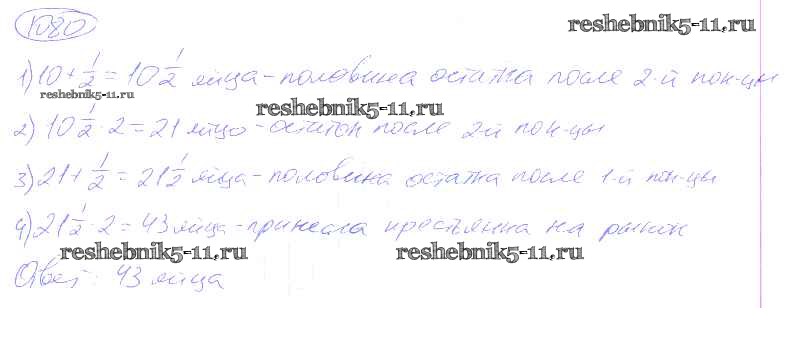 1080
reshebnik5-11.ru
1) 10 + 1/2 = 10 1/2 яйца - половина остатка после 2-й пок-цы
reshebnik5-11.ru
reshebnik5-11.ru
2) 10 1/2 · 2 = 21 яйцо - остаток после 2й пок-цы
3) 21 + 1/2 = 21 1/2 яйца - половина остатка после 1-й пок-цы
4) 21 1/2 · 2 = 43 яйца - принесла крестьянка на рынок
reshebnik5-11.ru
reshebnik5-11.ru
Ответ: 43 яйца